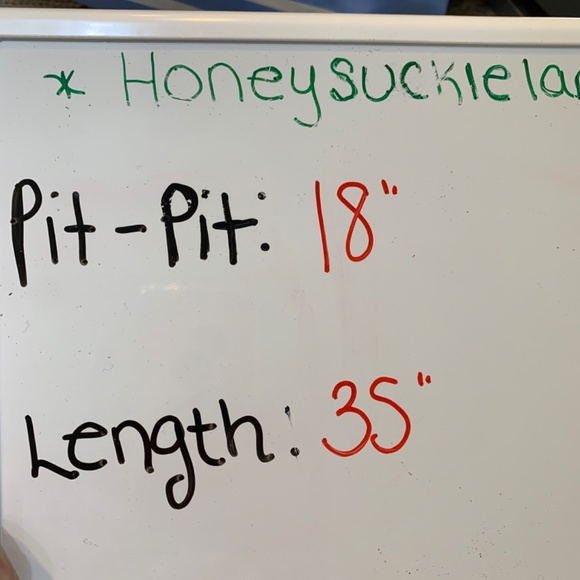 * Honeysucklela
Pit-Pit: 18"
Length: 35"